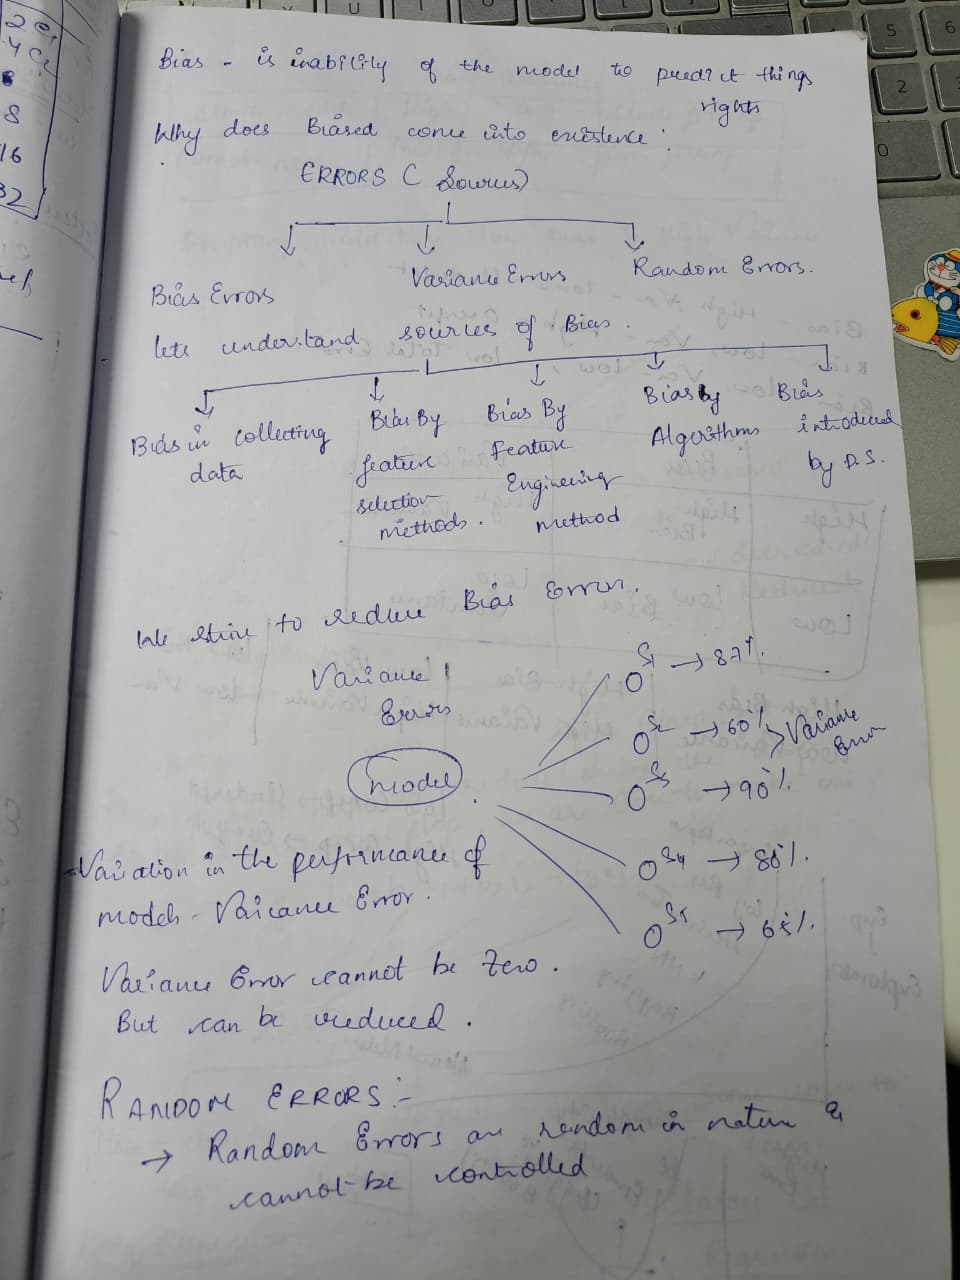 Bias - is inability of the model to predict things
rights
Why does Biased come into existence :
ERRORS ( Sources)
Bias Errors
Variance Errors
Random Errors.
lets understand sources of Bias.
Bias in collecting
data
Bias By
feature
selection
methods.
Bias By
Feature
Engineering
method
Bias by
Algorithms
Bias
introduced
by D.S.
We strive to reduce Bias Error.
Variance
Errors
model
S1 → 87%.
S2 → 60%
S3 → 90%.
Variance
Error
S4 → 80%.
S5 → 65%.
Variation in the performance of
models - Variance Error.
Variance Error cannot be Zero.
But can be reduced.
RANDOM ERRORS :-
→ Random Errors are random in nature &
cannot be controlled
2
4
8
16
32
5
6
2
0